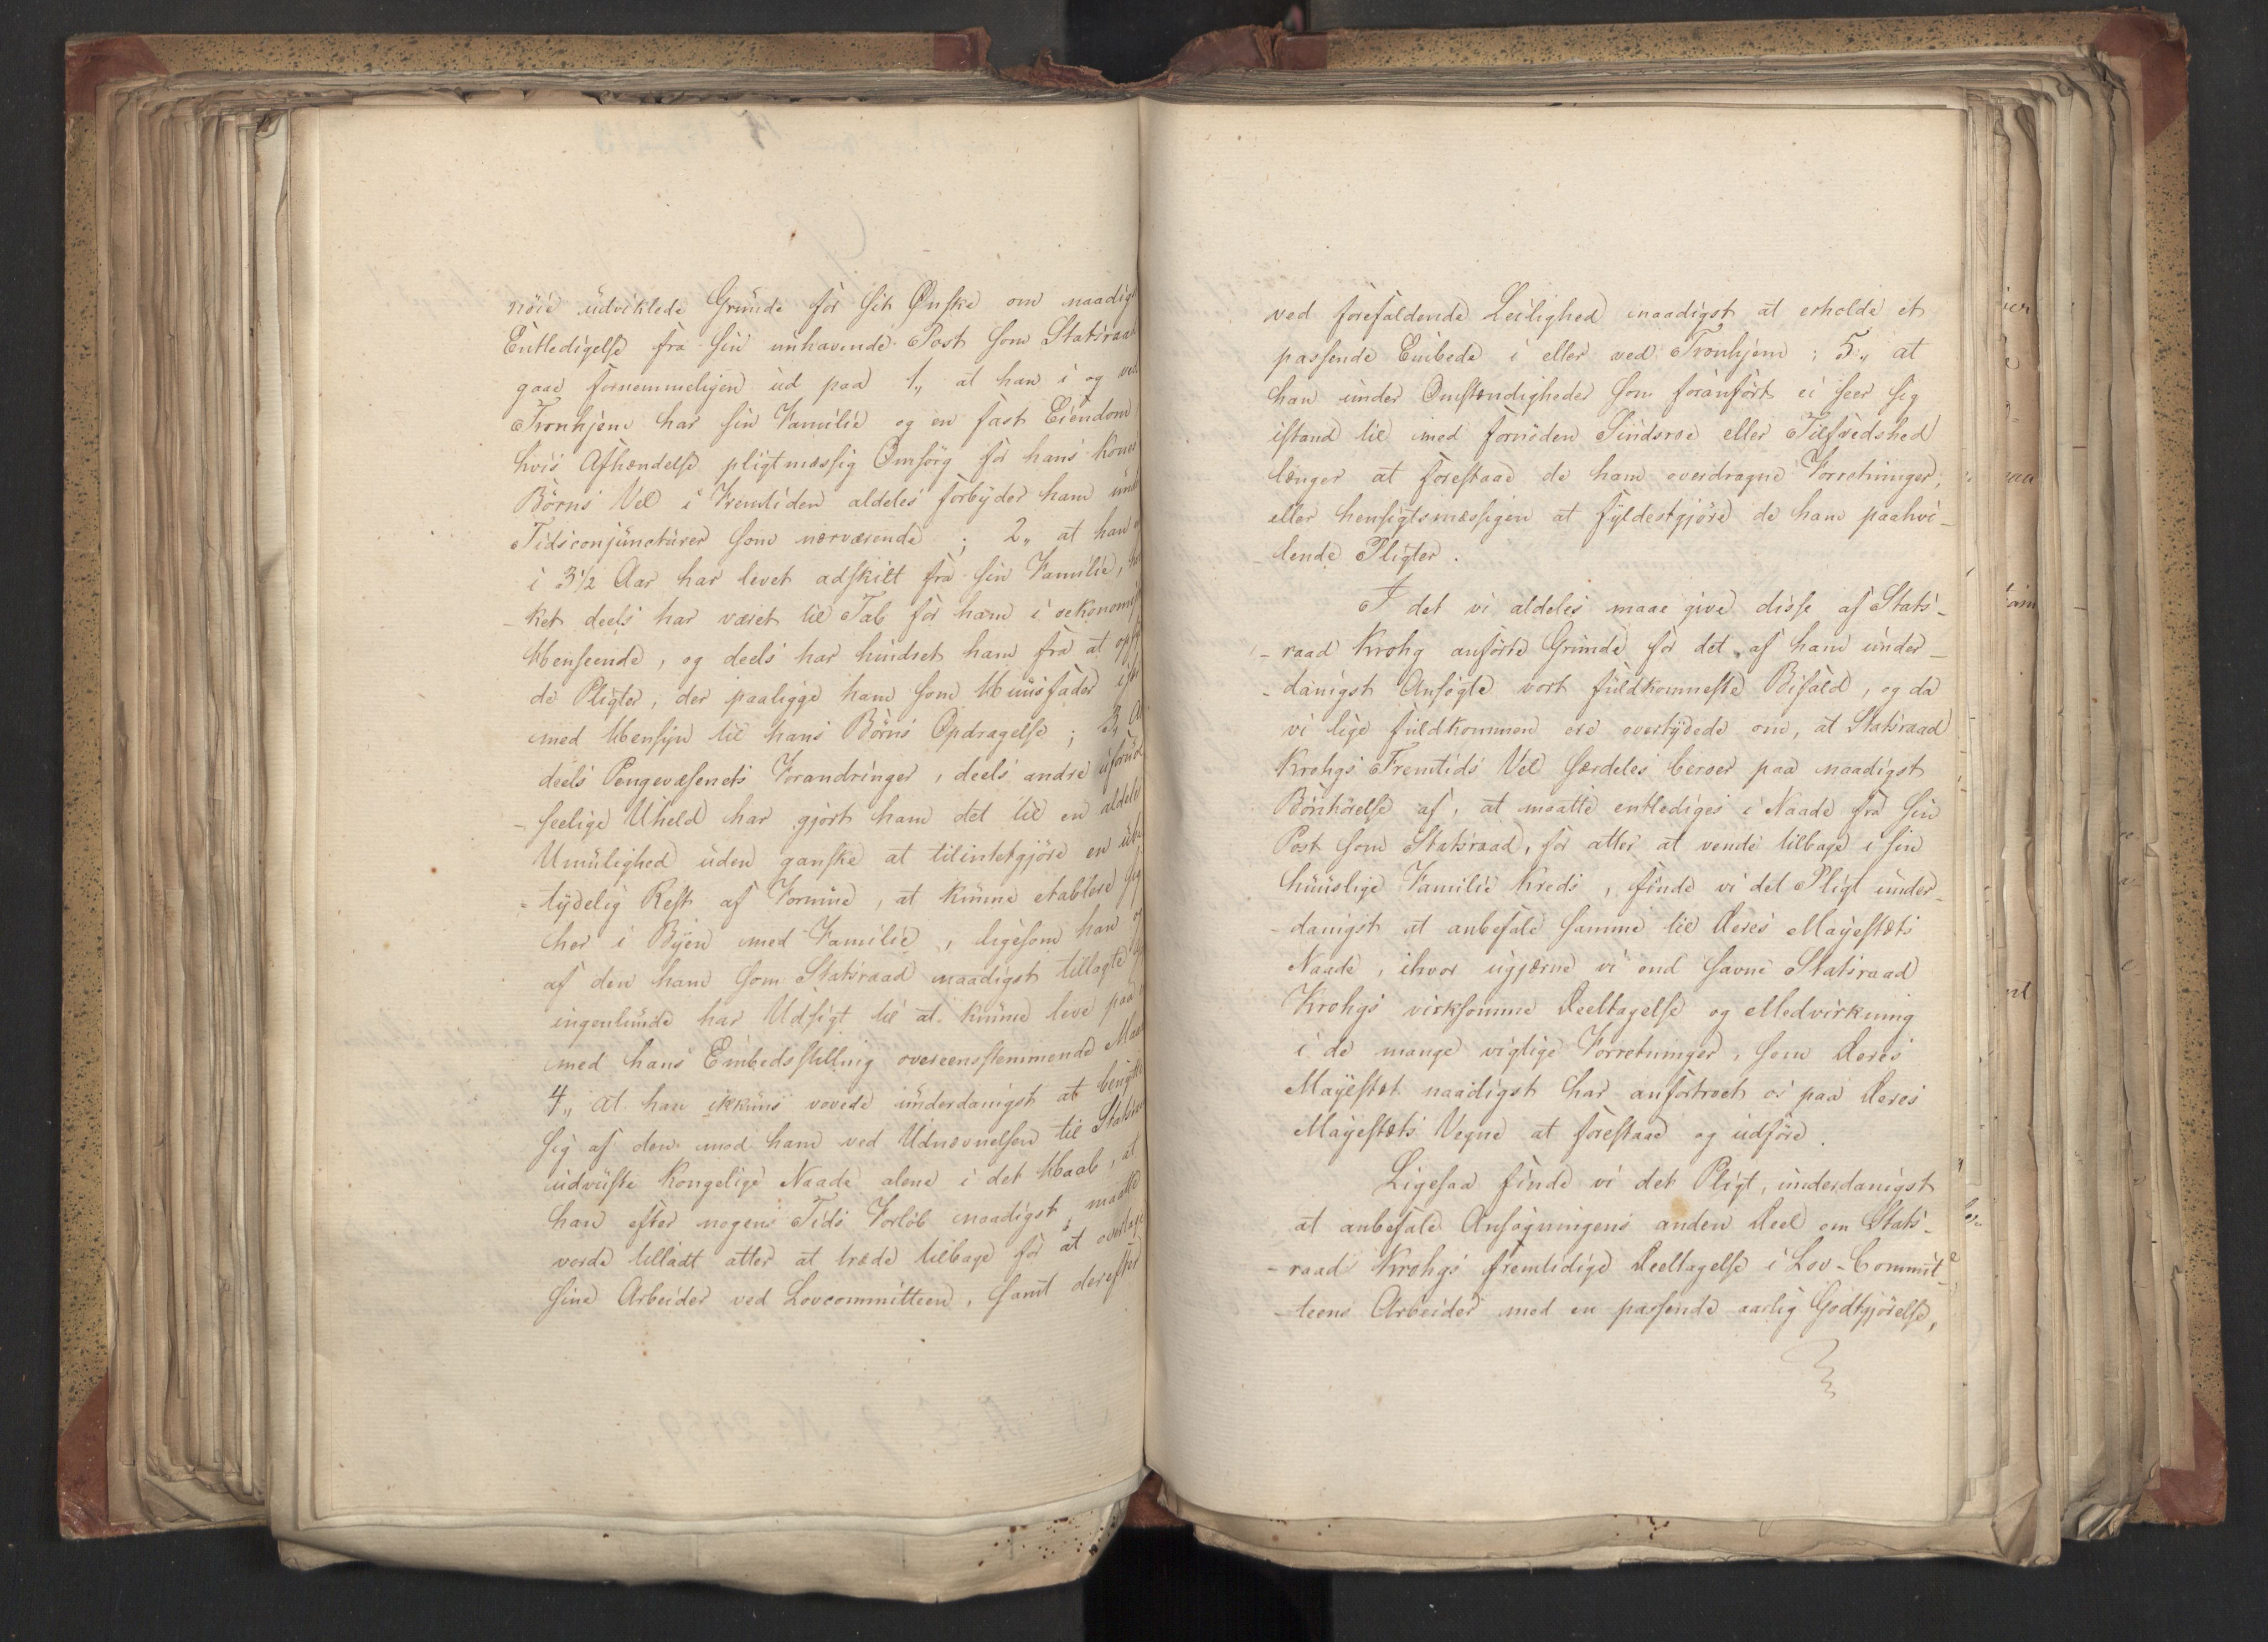 nöie udviklede Grunde for sit Ønske om naadigst
Entledigelse fra sin innhavende Post som Statsraad
gaae fornemmeligen ud paa 1,, at han i og ved
Tronhjem har sin Familie og en fast Eiendom
hvis Afhændelse pligtmæssig Omsorg for hans Kones
Börns Vel i Fremtiden aldeles forbyder ham under
Tidsconjuncturer som nærværende ; 2,, at han
i 3 1/2 Aar har levet adskilt fra sin Familie,
-ket deels har været til Tab for ham i oekonomisk
Henseende, og deels har hindret ham fra at
de Pligter, der paaligge ham som Huusfader
med Hensyn til hans Börns Opdragelse ; 3,,
deels Pengevæsenets Forandringer, deels andre uforud
-seelige Uheld har gjort ham det til en aldeles
Umulighed uden ganske at tilintetgjöre en ube
-tydelig Rest af Formue, at kunne etablere sig
her i Byen med Familie, ligesom han
af den ham som Statsraad naadigst tillagte
ingenlunde har Udsigt til at kunne leve paa
med hans Embedsstilling overeensstemmende
4,, at han ikkuns vovede underdanigst at benytte
sig af den mod ham ved Udnævnelsen til Statsraad
udviiste Kongelige Naade alene i det Haab, at
han efter nogen Tids Forløb naadigst maatte
vorde tilladt atter at træde tilbage for at overtage
sine Arbeider ved Lovcommitteen, samt derefter
ved forefaldende Leilighed naadigst at erholde et
passende Embede i eller ved Tronhjem ; 5,, at
han under Omstændigheder som foranfört ei seer sig
istand til med fornöden Sindsroe eller Tilfredshed
længer at forestaae de ham overdragne Forretninger,
eller hensigtsmæssigen at fyldestgjöre de ham paahvi-
-lende Pligter.
I det vi aldeles maae give disse af Stats-
-raad Krohg anförte Grunde for det af ham under-
-danigst Ansögte vort fuldkomneste Bifald, og da
vi lige fuldkommen ere overtydede om, at Statsraad
Krohgs Fremtids Vel særdeles beroer paa naadigst
Bönhörelse af, at maatte entlediges i Naade fra sin
Post som Statsraad, for atter at vende tilbage i sin
huuslige Familie Kreds, finde vi det Pligt under-
-danigst at anbefale samme til Deres Mayestæts
Naade, ihvor ugjærne vi end savne Statsraad
Krohgs virksomme Deeltagelse og Medvirkning
i de mange vigtige Forretninger, som Deres
Mayestæt naadigst har anfortroet os paa Deres
Mayestæts Vegne at forestaae og udföre.
Ligesaa finde vi det Pligt, underdanigst
at anbefale Ansøgningens anden Deel om Stats-
-raad Krohgs fremtidige Deeltagelse i Lov-Commit-
-teens Arbeider med en passende aarlig Godtgjörelse,